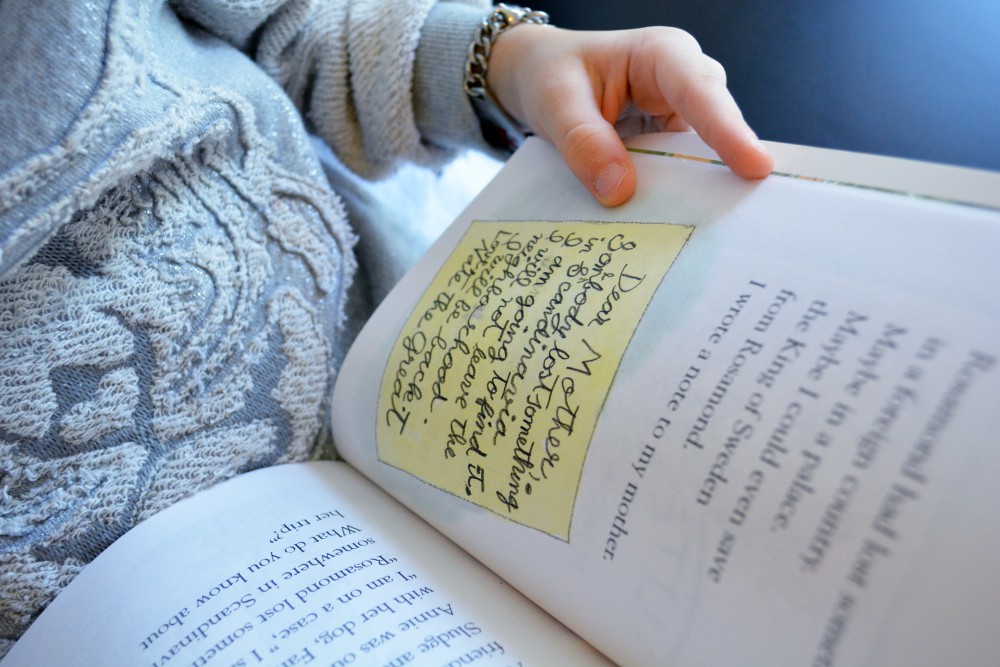 Rosamond had lost somet
in a foreign country.
Maybe in a palace.
Maybe I could even save
the King of Sweden
from Rosamond.
I wrote a note to my mother.
Dear Mother,
Sombody lost something
in Scandinavia.
I am going to find it.
I will not leave the
neighborhood.
I will be back.
Love,
Nate the Great
friend
Sludge and
Annie was ou
with her dog, Fan
“I am on a case,” I s
“Rosamond lost somet
somewhere in Scandinavi
What do you know about
her trip?”